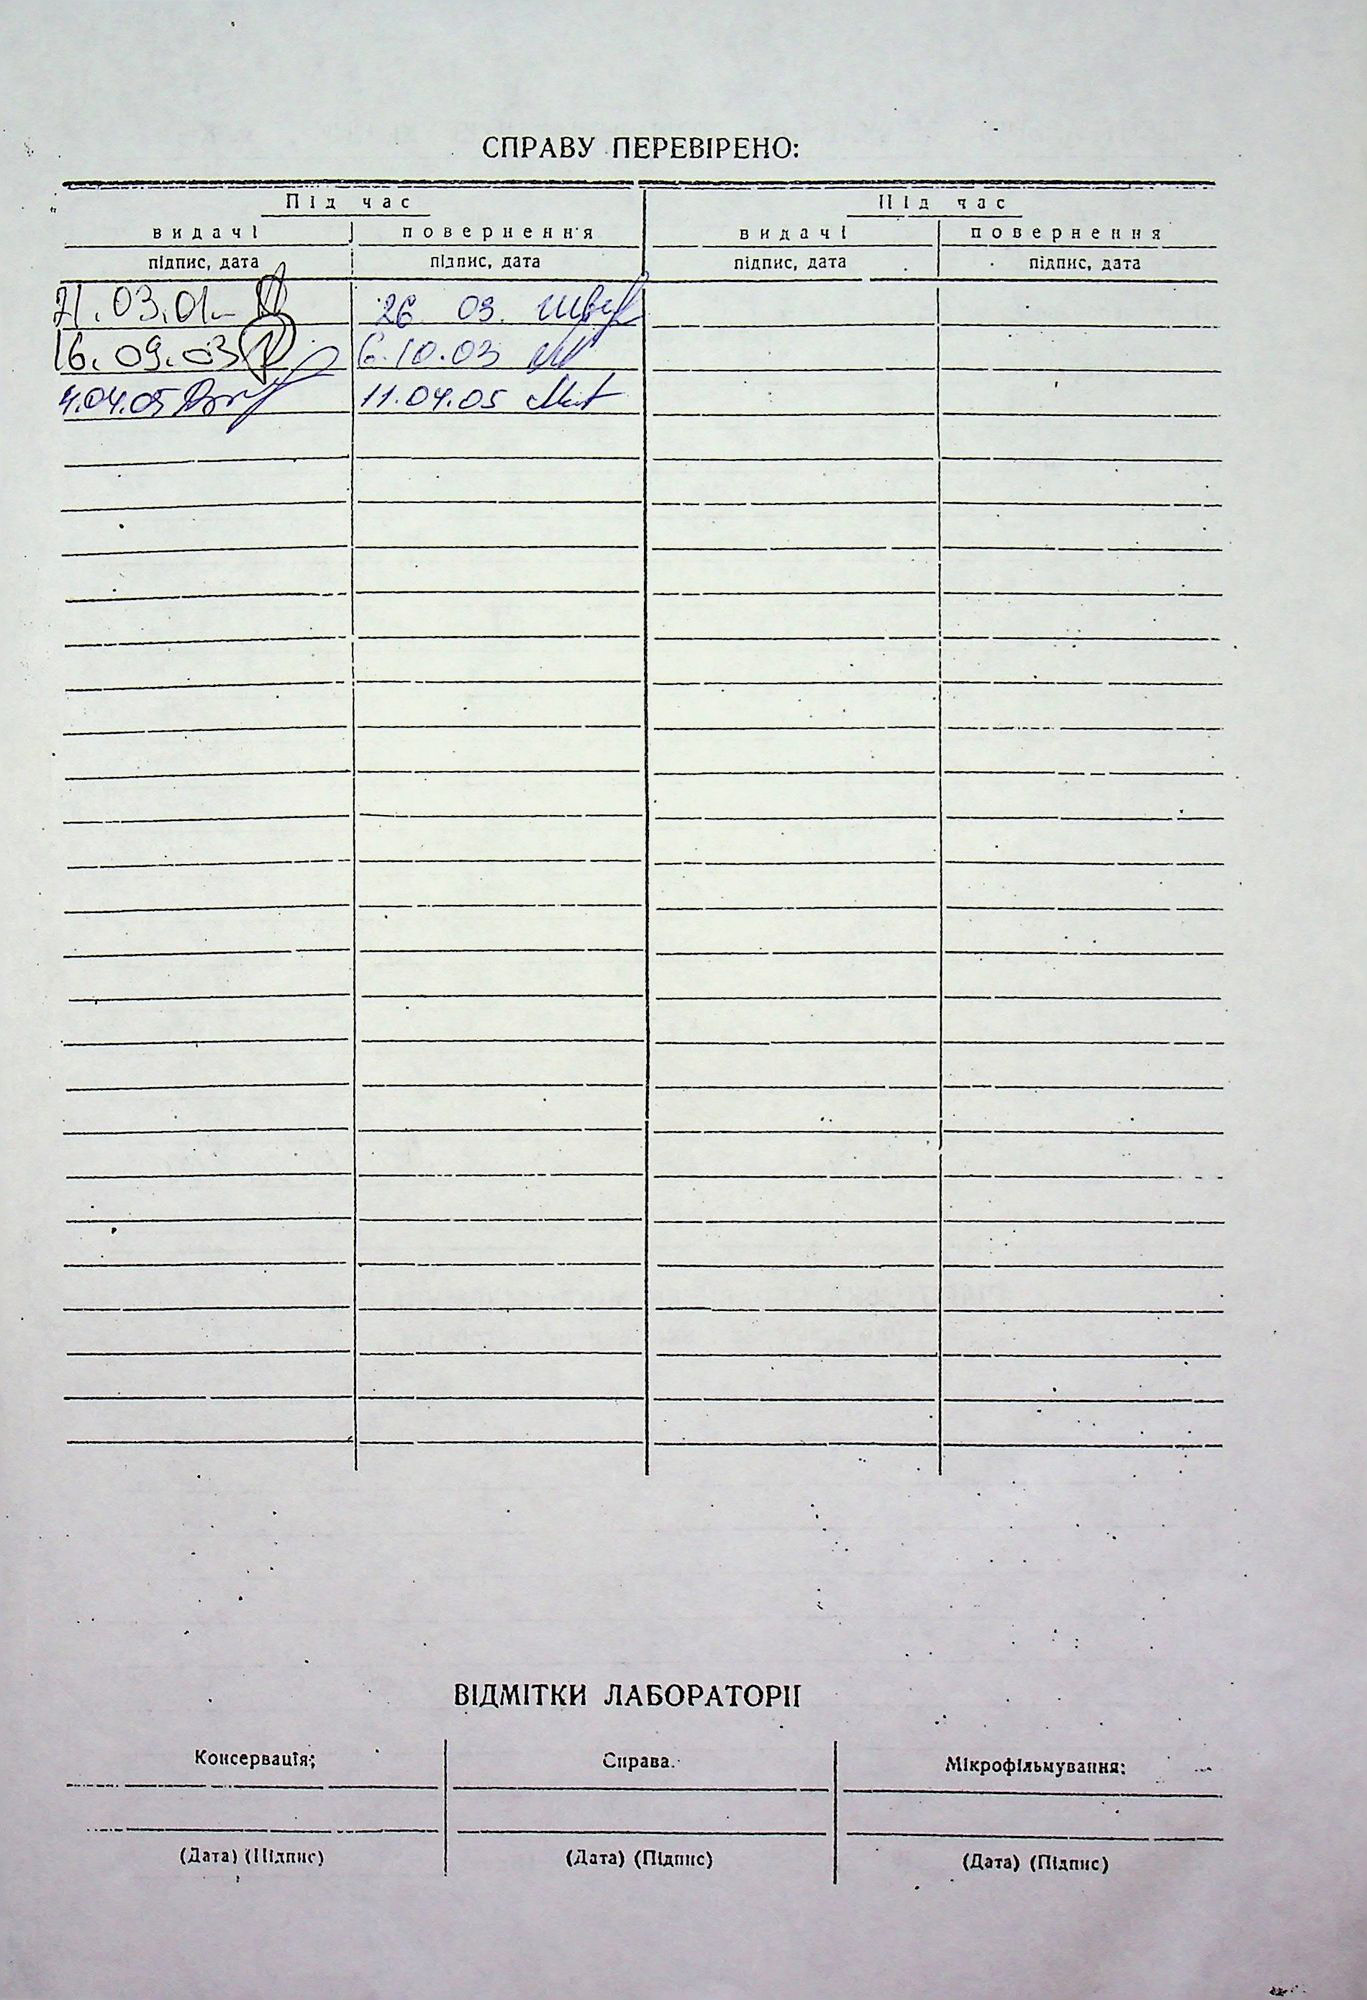 СПРАВУ ПЕРЕВІРЕНО:
Під час Під час
видачі повернення видачі повернення
підпис, дата підпис, дата підпис, дата підпис, дата
21.03.01 26 03.
16.09.03 6.10.03
4.04.05 11.04.05
ВІДМІТКИ ЛАБОРАТОРІЇ
Консервація; Справа. Мікрофільмування:
(Дата) (Підпис) (Дата) (Підпис) (Дата) (Підпис)